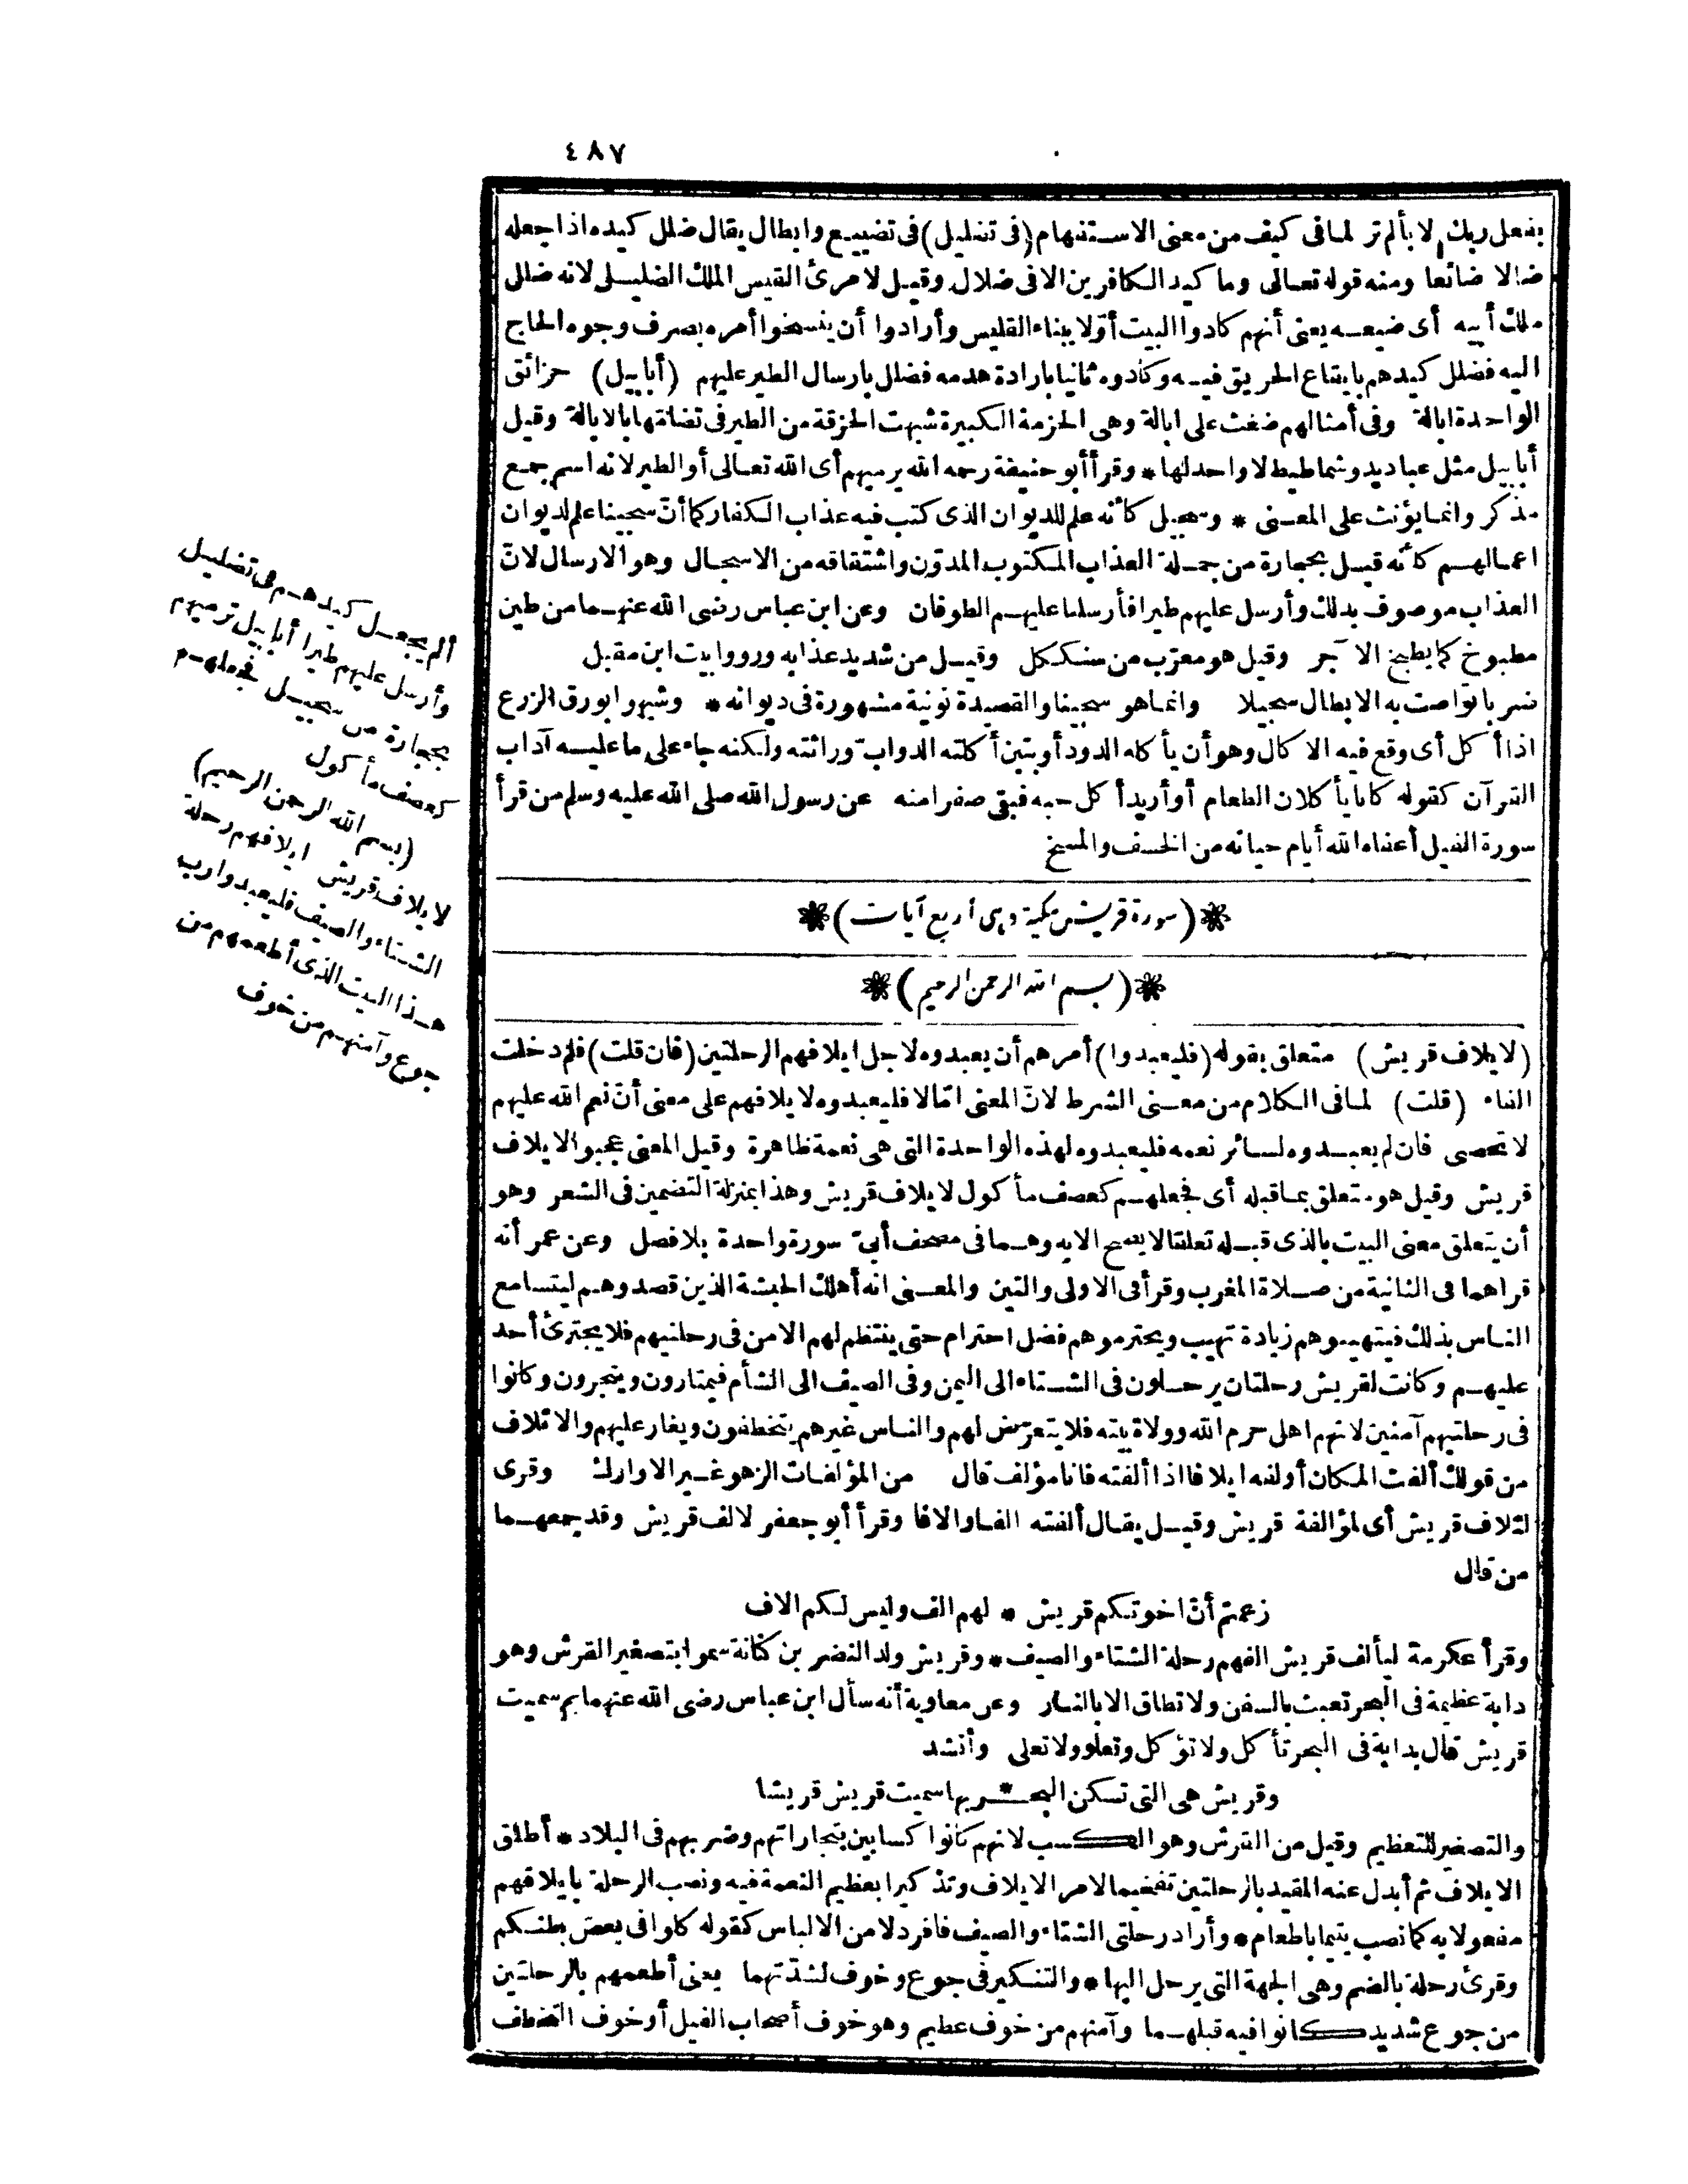 ٤٨٧
بفعل ربك لا بألم تر لما فى كيف من معنى الاستفهام (فى تضليل) فى تضييع وابطال يقال ضلل كيده اذا جعله
ضالا ضائعا ومنه قوله تعالى وما كيد الكافرين الا فى ضلال وقيل لامرئ القيس الملك الضليل لانه ضلل
ملك أبيه أى ضيعه يعنى أنهم كادوا البيت أوّلا ببناء القليس وأرادوا أن ينسخوا أمره بصرف وجوه الحاج
اليه فضلل كيدهم بايقاع الحريق فيه وكادوه ثانيا بارادة هدمه فضلل بارسال الطير عليهم (أبابيل) حزائق
الواحدة ابالة وفى أمثالهم ضغث على ابالة وهى الحزمة الكبيرة شبهت الحزقة من الطير فى تضامّها بالابالة وقيل
أبابيل مثل عباديد وشماطيط لا واحد لها * وقرأ أبو حنيفة رحمه الله يرميهم أى الله تعالى أو الطير لانه اسم جمع
مذكر وانما يؤنث على المعنى * وسجيل كأنه علم للديوان الذى كتب فيه عذاب الكفار كما أنّ سجينا علم لديوان
اعمالهم كأنه قيل بحجارة من جملة العذاب المكتوب المدوّن واشتقاقه من الاسجال وهو الارسال لانّ
العذاب موصوف بذلك وأرسل عليهم طيرا فأرسلنا عليهم الطوفان وعن ابن عباس رضى الله عنهما من طين
مطبوخ كما يطبخ الآجر وقيل هو معرّب من سنككل وقيل من شديد عذابه ورووا بيت ابن مقبل
ضربا تواصت به الابطال سجيلا وانما هو سجينا والقصيدة نونية مشهورة فى ديوانه * وشبهوا بورق الزرع
اذا أكل أى وقع فيه الاكال وهو أن يأكله الدود أو بتبن أكلته الدوابّ وراثته ولكنه جاء على ما عليه آداب
القرآن كقوله كانا يأكلان الطعام أو أريد أكل حبه فبقى صفرا منه عن رسول الله صلى الله عليه وسلم من قرأ
سورة الفيل أعفاه الله أيام حياته من الخسف والمسخ
(سورة قريش مكية وهى أربع آيات)
(بسم الله الرحمن الرحيم)
(لايلاف قريش) متعلق بقوله (فليعبدوا) أمرهم أن يعبدوه لاجل ايلافهم الرحلتين (فان قلت) فلم دخلت
الفاء (قلت) لما فى الكلام من معنى الشرط لانّ المعنى امّا لا فليعبدوه لايلافهم على معنى أنّ نعم الله عليهم
لا تحصى فان لم يعبدوه لسائر نعمه فليعبدوه لهذه الواحدة التى هى نعمة ظاهرة وقيل المعنى عجبوا لايلاف
قريش وقيل هو متعلق بما قبله أى فجعلهم كعصف مأكول لايلاف قريش وهذا بمنزلة التضمين فى الشعر وهو
أن يتعلق معنى البيت بالذى قبله تعلقا لا يصح الا به وهما فى مصحف أبىّ سورة واحدة بلا فصل وعن عمر أنه
قراهما فى الثانية من صلاة المغرب وقرأ فى الاولى والتين والمعنى انه أهلك الحبشة الذين قصدوهم ليتسامع
الناس بذلك فيتهيبوهم زيادة تهيب ويحترموهم فضل احترام حتى ينتظم لهم الامن فى رحلتيهم فلا يجترئ أحد
عليهم وكانت لقريش رحلتان يرحلون فى الشتاء الى اليمن وفى الصيف الى الشأم فيمتارون ويتجرون وكانوا
فى رحلتيهم آمنين لانهم اهل حرم الله وولاة بيته فلا يتعرّض لهم والناس غيرهم يتخطفون ويغار عليهم والائلاف
من قولك ألفت المكان أولفه ايلافا اذا ألفته فانا مؤلف قال من المؤلفات الزهو غير الاوارك وقرئ
لئلاف قريش أى لمؤالفة قريش وقيل يقال ألفته الفا والافا وقرأ أبو جعفر لالف قريش وقد جمعهما
من قال
زعمتم أنّ اخوتكم قريش * لهم الف وليس لكم الاف
وقرأ عكرمة ليألف قريش الفهم رحلة الشتاء والصيف * وقريش ولد النضر بن كنانة سموا بتصغير القرش وهو
دابة عظيمة فى البحر تعبث بالسفن ولا تطاق الا بالنار وعن معاوية أنه سأل ابن عباس رضى الله عنهما بم سميت
قريش قال بدابة فى البحر تأكل ولا تؤكل وتعلو ولا تعلى وأنشد
وقريش هى التى تسكن البحـ * ـر بها سميت قريش قريشا
والتصغير للتعظيم وقيل من القرش وهو الكسب لانهم كانوا كسابين بتجاراتهم وضربهم فى البلاد * أطلق
الايلاف ثم أبدل عنه المقيد بالرحلتين تفخيما لامر الايلاف وتذكيرا بعظيم النعمة فيه ونصب الرحلة بايلافهم
مفعولا به كما نصب يتيما باطعام * وأراد رحلتى الشتاء والصيف فافرد لامن الالباس كقوله كلوا فى بعض بطنكم
وقرئ رحلة بالضم وهى الجهة التى يرحل اليها * والتنكير فى جوع وخوف لشدّتهما يعنى أطعمهم بالرحلتين
من جوع شديد كانوا فيه قبلهما وآمنهم من خوف عظيم وهو خوف أصحاب الفيل أو خوف التخطف
ألم يجعل كيدهم فى تضليل
وأرسل عليهم طيرا أبابيل ترميهم
بحجارة من سجيل فجعلهم
كعصف مأكول
(بسم الله الرحمن الرحيم)
لايلاف قريش ايلافهم رحلة
الشتاء والصيف فليعبدوا رب
هذا البيت الذى أطعمهم من
جوع وآمنهم من خوف